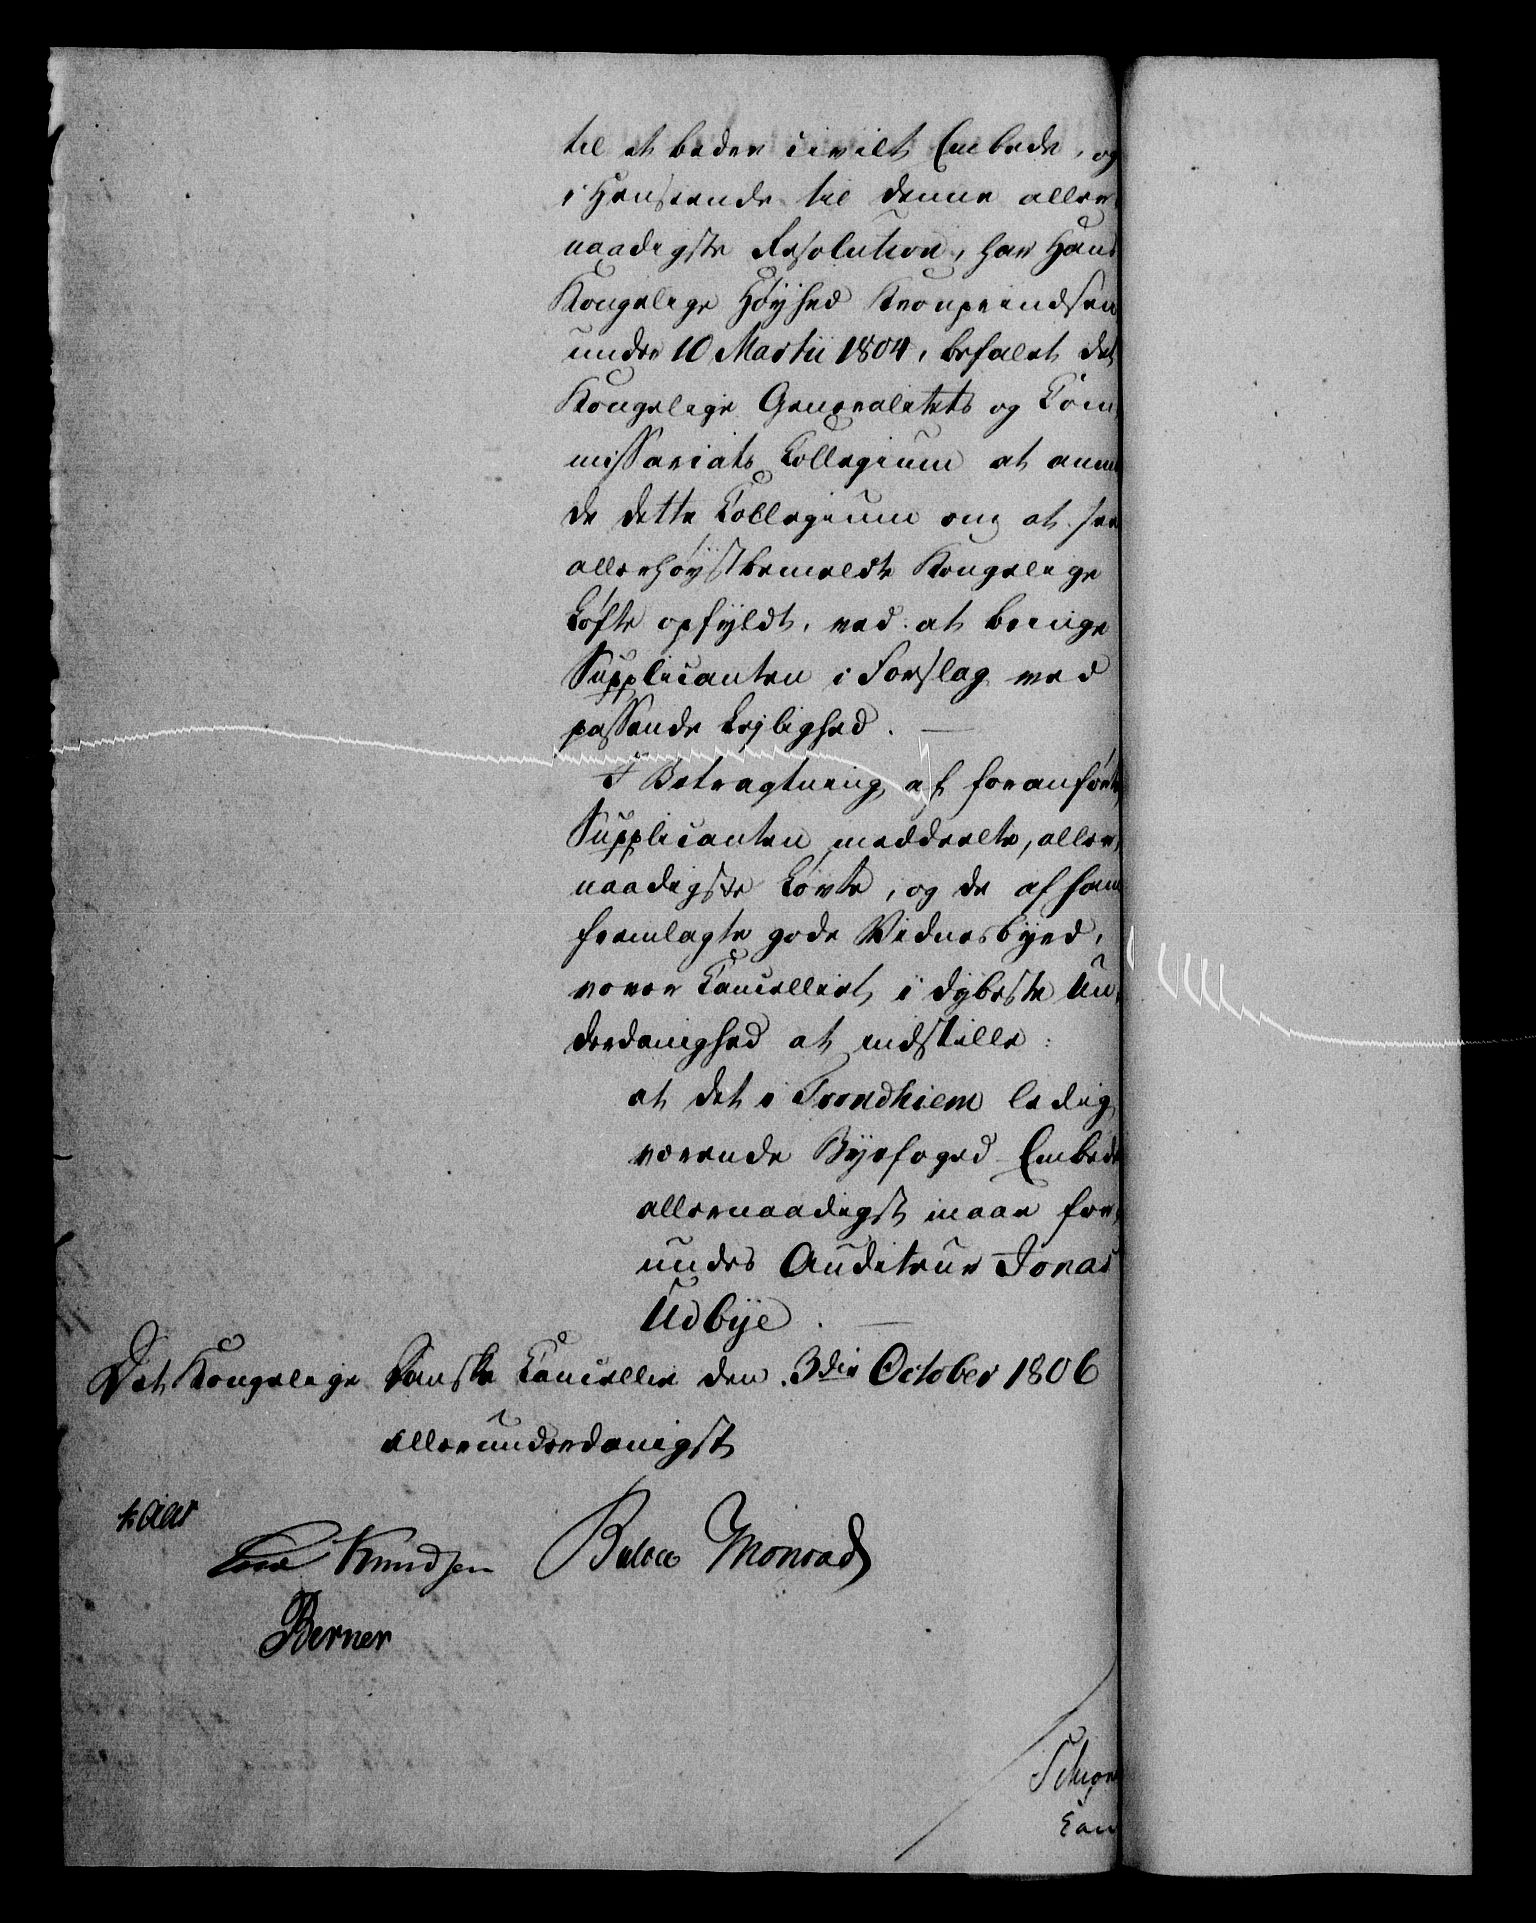 til et bedre civilt Embede, og
i Henseende til denne aller
naadigste Resolution, har Hans
Kongelige Høyhed Kronprindsen
under 10 Martii 1804, befalet det
Kongelige Generalitets og Com,
missariats Collegium at anmo
de dette Collegium om at see
allerhøystbemeldte Kongelige
Løfte opfyldt, ved at bringe
Supplicanten i Forslag ved
passende Lejlighed. —
I Betragtning af foranførte
Supplicanten meddeelte, aller,
naadigste Løvte, og de af ham
fremlagte gode Vidnesbyrd,
vover Cancelliet i dybeste Un,
derdanighed at indstille:
at det i Trondhiem ledig
værende Byefoged Embede
allernaadigst maae for,
undes Auditeur Jonas
Udbye. —
Det Kongelige Danske Cancellie den 3die October 1806
allerunderdanigst
Kaas
Knudsen Bülow Monrad
Berner